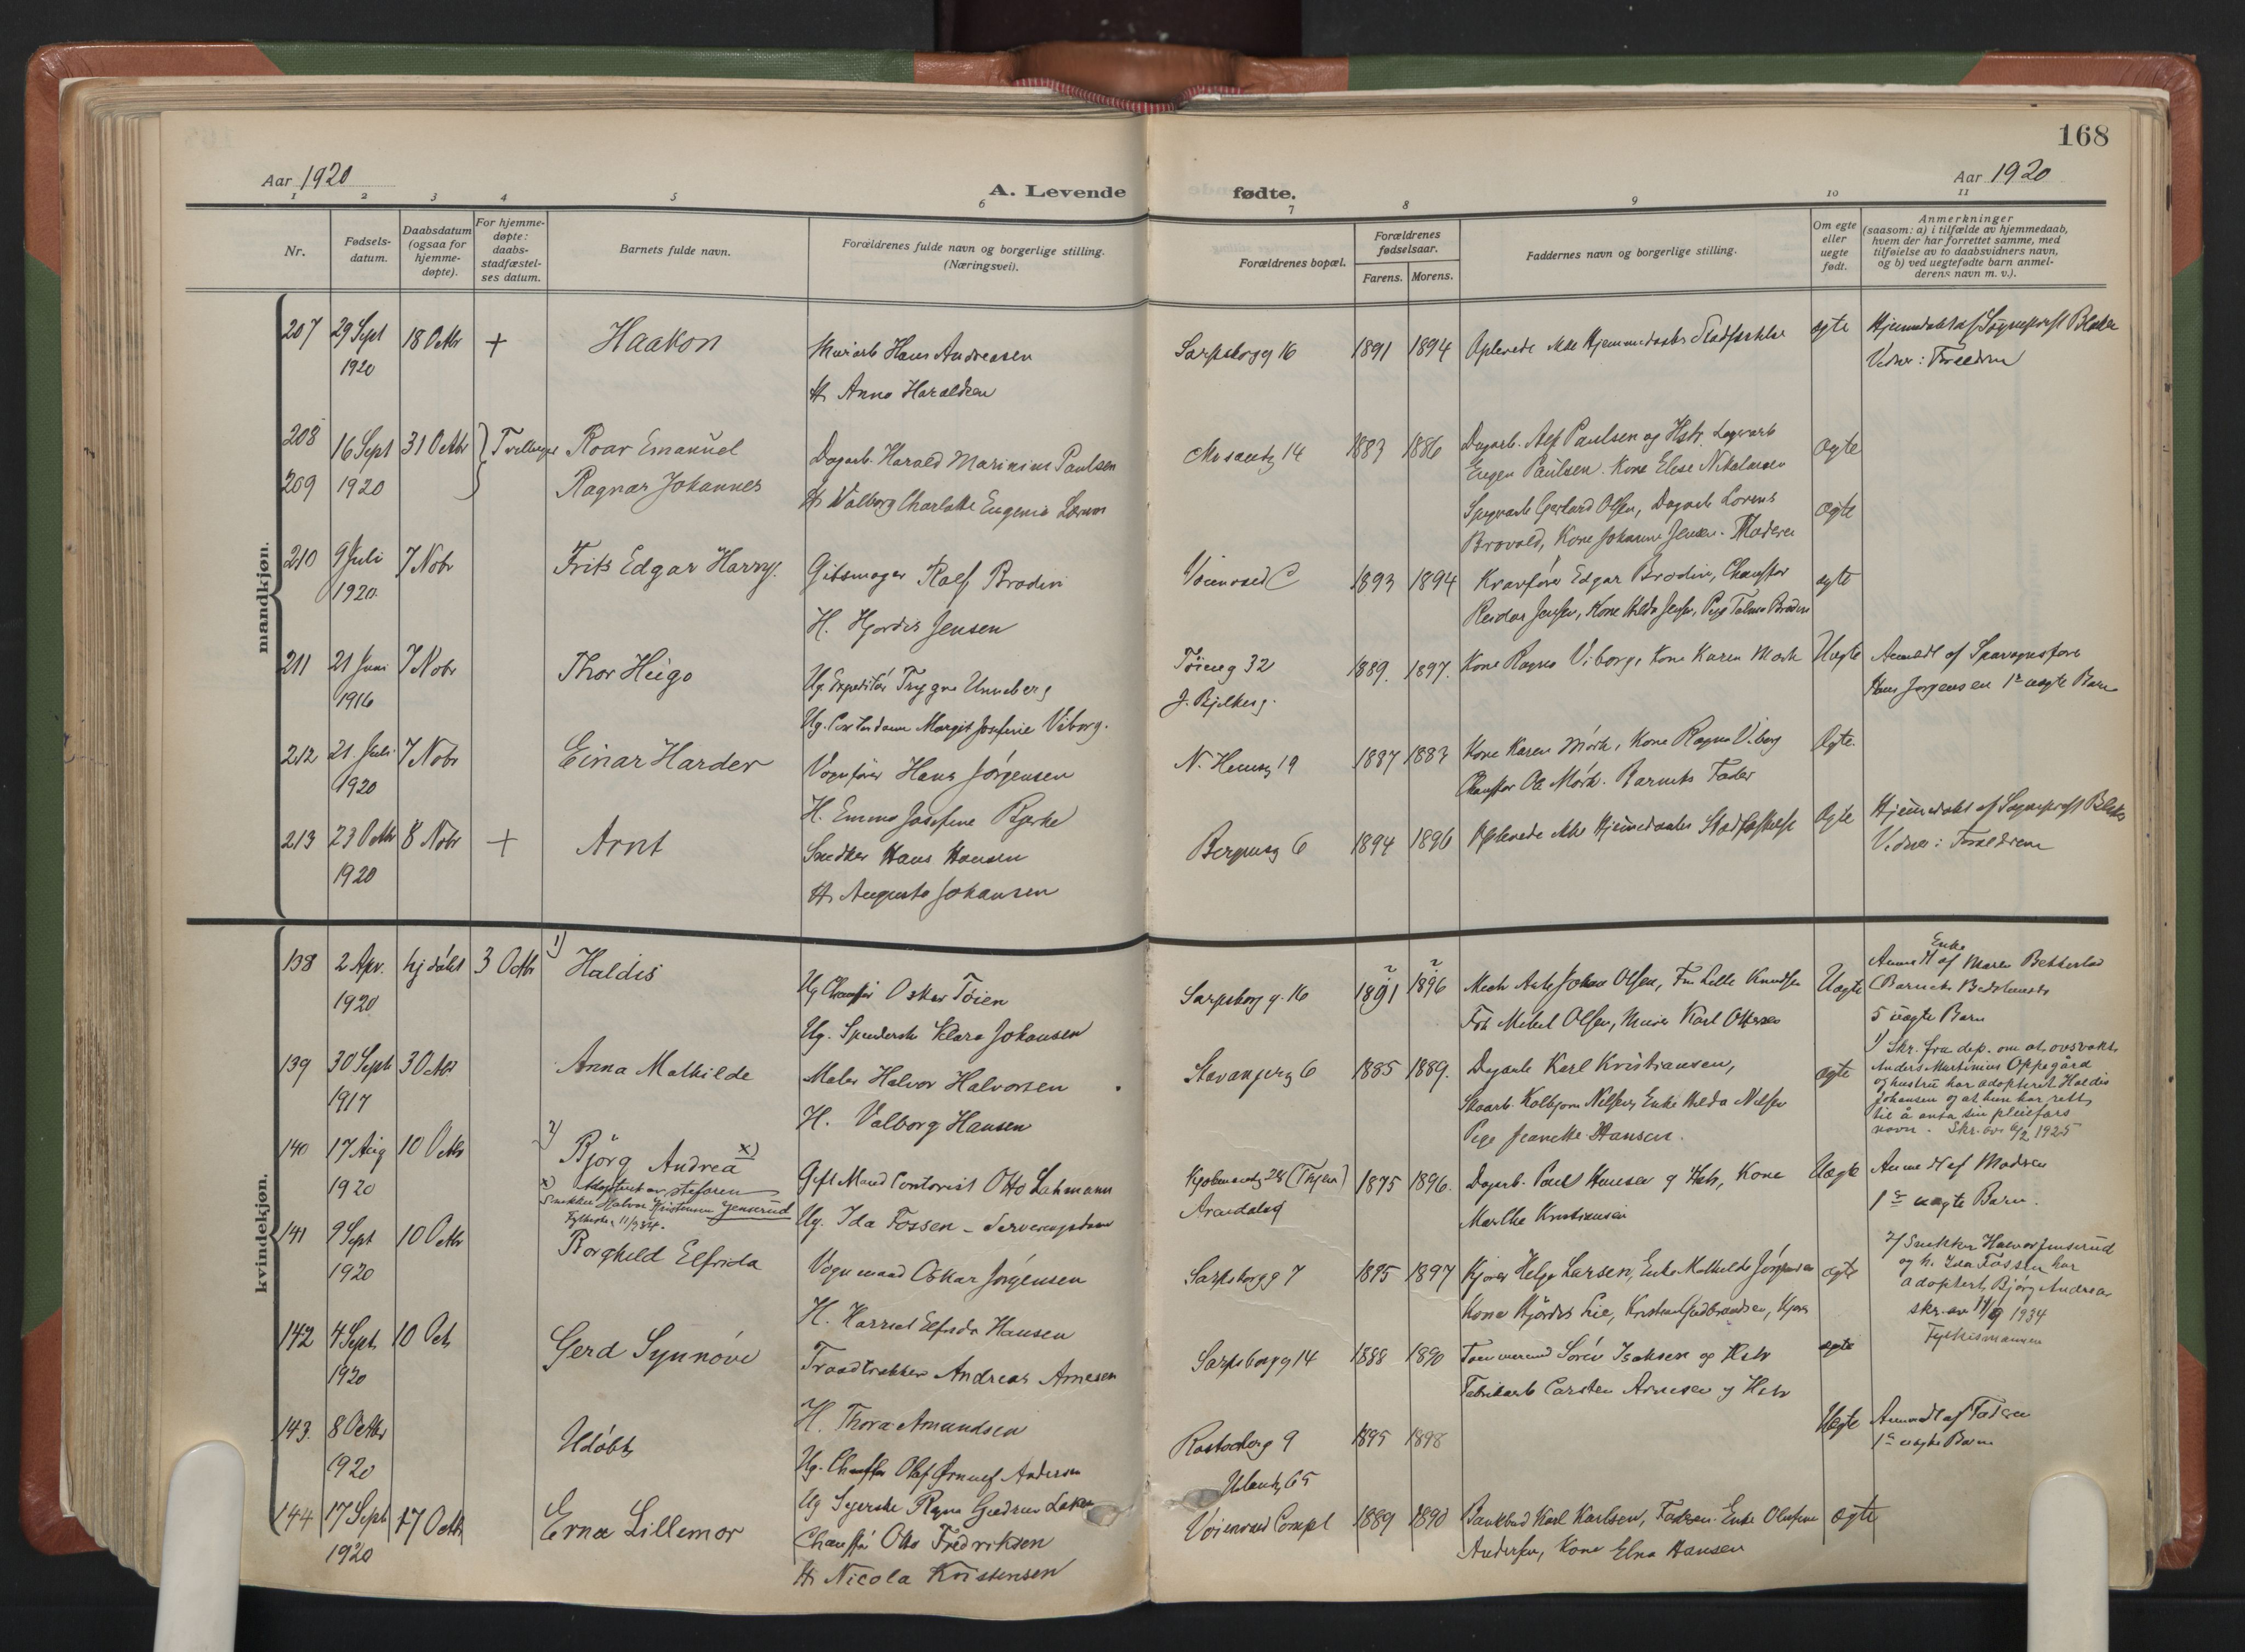 168
Aar 1920
A. Levende fødte.
Aar 1920
1 2 3 4 5 6 7 8 9 10 11
Nr.
Fødsels-
datum.
Daabsdatum
(ogsaa for
hjemme-
døpte).
For hjemme-
døpte:
daabs-
stadfæstel-
ses datum.
Barnets fulde navn.
Forældrenes fulde navn og borgerlige stilling.
(Næringsvei).
Forældrenes bopæl.
Forældrenes
fødselsaar.
Farens. Morens.
Faddernes navn og borgerlige stilling.
Om egte
eller
uegte
født.
Anmerkninger
(saasom: a) i tilfælde av hjemmedaab,
hvem der har forrettet samme, med
tilføielse av to daabsvidners navn,
og b) ved uegtefødte barn anmel-
derens navn m. v.).
mandkjøn.
207 29 Sept 18 Octbr + Haakon
1920
Murarb Hans Andreasen
H. Anna Haraldsen
Sarpsborgg 16 1891 1894 Oplevede ikke Hjemmedaabs Stadfæstelse ægte
Hjemmedøbt af Sogneprest Blakar
Vidner: Forældrene
208 16 Sept 31 Octbr } Tvillinger Roar Emanuel
209 1920 Ragnar Johannes
Dagarb. Harald Marinius Paulsen
H. Valborg Charlotte Eugenie
14 1883 1886 Dagarb. Alf Paulsen og Hstr. Lagerarb
Eugen Paulsen. Kone Elise Nikolaisen
Gerhard Olsen, Dagarb Lorens
Brovold, Kone Johanne Jensen. Moderen
ægte
ægte
210 9 Juli 7 Nobr Frits Edgar Harry.
1920.
Gibsmager Ralf Brodin
H. Hjørdis Jensen
Voienvold C 1893 1894 Kranfører Edgar Brodin, Chauffør
Reidar Jensen, Kone Hilda Jensen, Pige Brodin
ægte
211 21 Juni 7 Nobr Thor Hugo
1916
Ug. Expeditør Trygve Unneberg
Ug. Margit Josefine Viborg.
Tøieng 32
J. Bjelkesg.
1889. 1897. Kone Ragna Viborg, Kone Karen Mørk Uægte
Anmeldt af
Hans Jørgensen 1ste uægte Barn
212 21 Juli 7 Nobr Einar Harder
1920
Vognfører Hans Jørgensen
H. Emma Josefine Bjerke
19 1887 1883 Kone Karen Mørk, Kone Ragna Viborg
Chauffør Ole Mørk. Barnets Fader
Ægte.
213 23 Octbr 8 Nobr + Arnt
1920
Snedker Hans Hansen
H. Augusta Johansen
Bergensg 6 1894 1896 Oplevede ikke Hjemmedaabs Stadfæstelse Ægte
Hjemmedøbt af Sogneprest Blakar
Vidner: Forældrene
kvindekjøn.
138 2 Apr. hjdøbt 3 Octbr 1) Haldis
1920
Ug Chauffør Oskar Tøien
Ug. Spinderske Klara Johansen
Sarpsborgg. 16 1891 1896 Mech Arb Johan Olsen, Fru Lilly Knudsen
Frk Mikel Olsen, Murer Karl Ottersen
Uægte
Anmeldt af Enke Maren Bekkerlad
(Barnets Bedstemoder
5 uægte Barn
1) Skr. fra dep. om at ovsvakt
Anders Martinius Oppegård
og hustru har adoptert Haldis
Johansen og at hun har rett
til å anta sin pleiefars
navn. Skr. av 6/2 1925
139 30 Septb 3 Octbr Anna Mathilde
1917
Maler Halvor Halvorsen
H. Valborg Hansen
Stavangerg 6 1885 1889. Dagarb Karl Kristiansen,
Skoarb. Kolbjørn Nilsen, Enke Hilda Nilsen
Pige Jeanette Hansen.
ægte
140 17 Aug 10 Octbr 2) Bjørg Andrea x)
1920
x) Adoptert av stefaren
Snekker Halvor Kristensen Jenserud
Fylkesm. 11/9 34.
Gift Mand Contorist Otto Lahmann
Ug. Ida Fossen - Serveringsdame
28 (Thjem)
Arendalsg
1875 1896. Dagarb. Paul Hansen og Hstr, Kone
Marthe Kristiansen
Uægte
Anmeldt af Modren
1ste uægte Barn.
2) Snekker Halvor Jenserud
og h. Ida Fossen har
adoptert Bjørg Andrea
skr. av 11/9 1934
Fylkesmannen
141 9 Sept 10 Octbr Borghild Elfrida
1920
Vognmand Oskar Jørgensen
H. Harriet Elfrida Hansen
Sarpsborgg 7 1895 1897 Kjører Helge Larsen, Enke Mathilde Jørgensen
Kone Hjørdis Lie, Kristian Gudbrandsen, Kjører
ægte
142 4 Septb 10 Oct Gerd Synnøve
1920
Traadtrækker Andreas Arnesen
H. Thora Amundsen
Sarpsborgg 14 1888 1890 Tømmermand Søren Isaksen og Hstr
Fabrikarb Carsten Arnesen og Hstr
ægte
143. 8 Octbr Udøbt
1920
Ug. Chauffør Olaf Ørnulf Andersen
Ug Syerske Ragna Gudrun
9
Uelandsg 65
1895 1898
Uægte
Anmeldt af Fadren
1ste uægte Barn
144 17 Septb 17 Octbr Erna Lillemor
1920
Chauffør Otto Fredriksen
H. Nicola Kristensen
Voienvold Compl 1889 1890 Karl Karlsen, Fadren. Enke Olufine
Andersen, Kone Elna Hansen
ægte